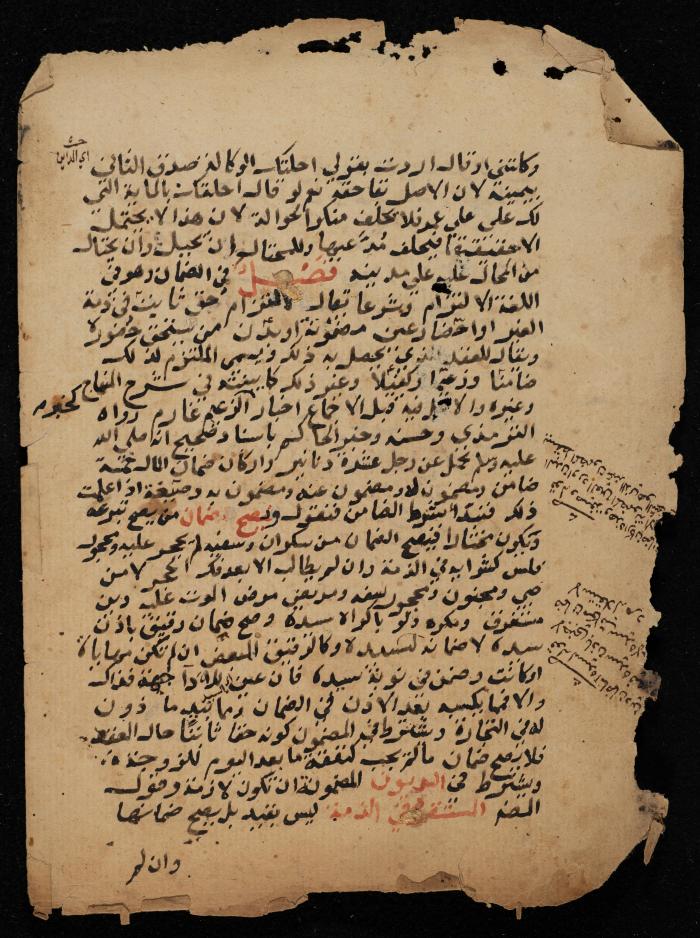 وكالتي او قال اردت بقولي احلتك الوكالة صدق الثاني
بيمينه لان الاصل بقا حقه نعم لو قال احلتك بالماية التي
لك علي على عمرو فلا يحلف منكر الحوالة لان هذا لا يحتمل
الا حقيقتها فيحلف مدعيها وللمحتال ان يحيل وان يحتال
من المحال عليه على مدينه فصل في الضمان وهو في
اللغة الالتزام وشرعا يقال لالتزام حق ثابت في ذمة
الغير او احضار عين مضمونة او بدن من يستحق حضوره
ويقال للعقد الذي يحصل به ذلك ويسمى الملتزم لذلك
ضامنا وزعيما وكفيلا وغير ذلك كما بينته في شرح المنهاج
وغيره والاصل فيه قبل الاجماع اخبار كخبر الزعيم غارم رواه
الترمذي وحسنه وخبر الحاكم باسناد صحيح انه صلى الله
عليه وسلم تحمل عن رجل عشرة دنانير واركان ضمان المال خمسة
ضامن ومضمون له ومضمون عنه ومضمون به وصيغة اذا علمت
ذلك فنبدا بشرط الضامن فنقول ويصح ضمان من يصح تبرعه
ويكون مختارا فيصح الضمان من سكران وسفيه لم يحجر عليه ومحجور
فلس كشرايه في الذمة وان لم يطالب الا بعد فك الحجر لا من
صبي ومجنون ومحجور سفه ومريض مرض الموت عليه دين
مستغرق ومكره ولو باكراه سيده وصح ضمان رقيق باذن
سيده لا ضمانه لسيده وكالرقيق المبعض ان لم تكن مهاياة
او كانت وضمن في نوبة سيده فان عين للاداء جهة فذاك
والا فمما يكسبه بعد الاذن في الضمان وما بيد ماذون
له في التجارة ويشترط في المضمون كونه حقا ثابتا حال العقد
فلا يصح ضمان ما لم يجب كنفقة ما بعد اليوم للزوجة
ويشترط في الديون المضمونة ان تكون لازمة وقول
المص المستقرة في الذمة ليس بقيد بل يصح ضمانها
وان لم